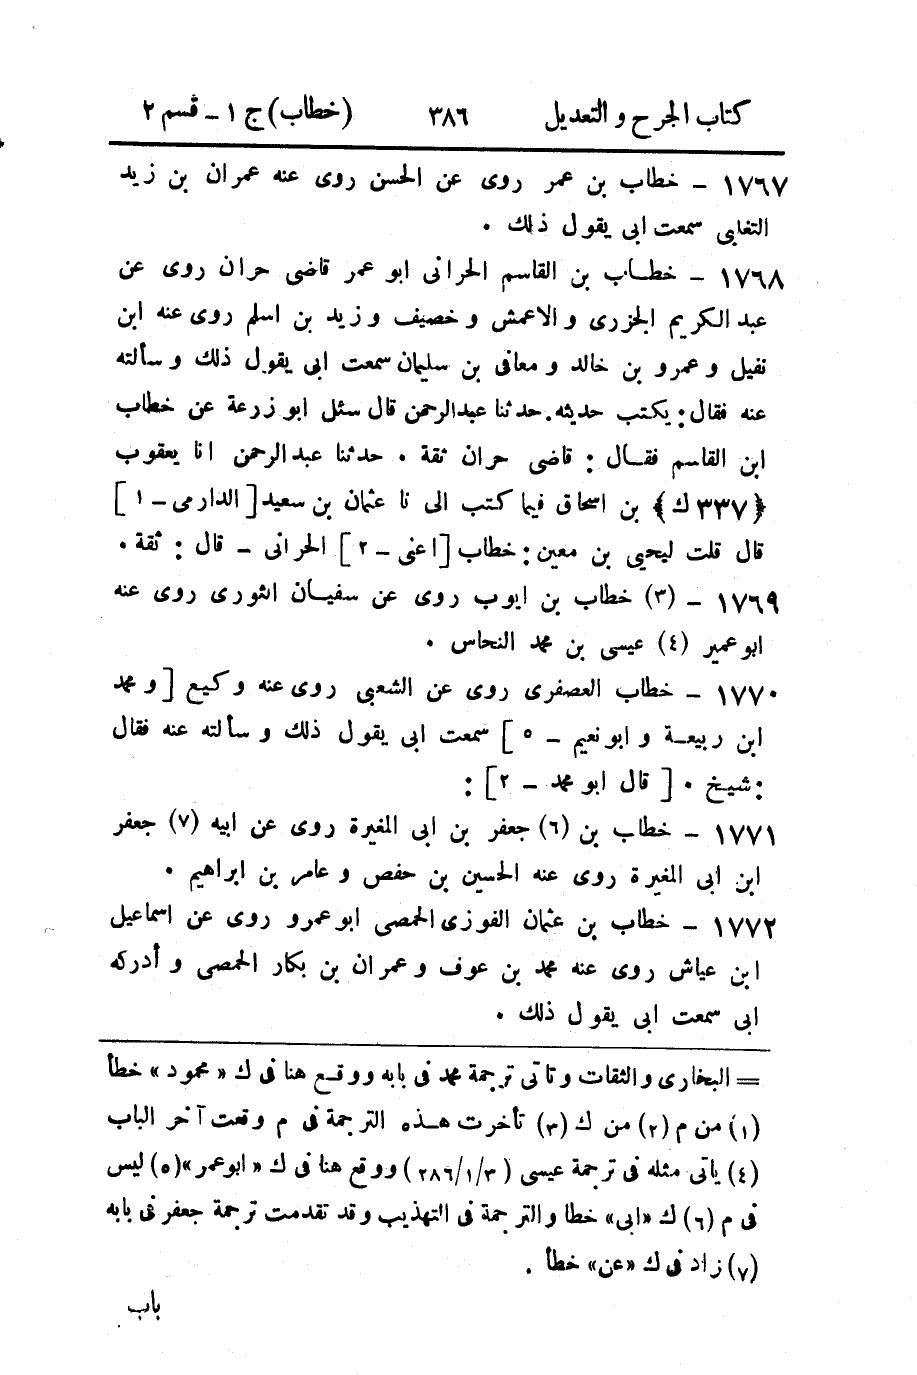 كتاب الجرح والتعديل ٣٨٦ (خطاب) ج ١ - قسم ٢
١٧٦٧ - خطاب بن عمر روى عن الحسن روى عنه عمران بن زيد
التغلبى سمعت ابى يقول ذلك .
١٧٦٨ - خطاب بن القاسم الحرانى ابو عمر قاضى حران روى عن
عبد الكريم الجزرى والاعمش وخصيف وزيد بن اسلم روى عنه ابن
نفيل وعمرو بن خالد ومعافى بن سليمان سمعت ابى يقول ذلك وسألته
عنه فقال : يكتب حديثه . حدثنا عبدالرحمن قال سئل ابو زرعة عن خطاب
ابن القاسم فقال : قاضى حران ثقة . حدثنا عبد الرحمن انا يعقوب
﴿٣٣٧ ك﴾ بن اسحاق فيما كتب الى نا عثمان بن سعيد [الدارمى - ١]
قال قلت ليحيى بن معين : خطاب [اعنى - ٢] الحرانى - قال : ثقة .
١٧٦٩ - (٣) خطاب بن ايوب روى عن سفيان الثورى روى عنه
ابو عمير (٤) عيسى بن محمد النحاس .
١٧٧٠ - خطاب العصفرى روى عن الشعبى روى عنه وكيع [ومحمد
ابن ربيعة وابو نعيم - ٥] سمعت ابى يقول ذلك وسألته عنه فقال
: شيخ . [قال ابو محمد - ٢] :
١٧٧١ - خطاب بن (٦) جعفر بن ابى المغيرة روى عن ابيه (٧) جعفر
ابن ابى المغيرة روى عنه الحسين بن حفص وعامر بن ابراهيم .
١٧٧٢ - خطاب بن عثمان الفوزى الحمصى ابو عمرو روى عن اسماعيل
ابن عياش روى عنه محمد بن عوف وعمران بن بكار الحمصى وأدركه
ابى سمعت ابى يقول ذلك .
= البخارى والثقات وتاتى ترجمة محمد فى بابه ووقع هنا فى ك « محمود » خطأ
(١) من م (٢) من ك (٣) تأخرت هذه الترجمة فى م وقعت آخر الباب
(٤) ياتى مثله فى ترجمة عيسى (٣/١/٢٨٦) ووقع هنا فى ك « ابوعمر » (٥) ليس
فى م (٦) ك «ابى» خطا والترجمة فى التهذيب وقد تقدمت ترجمة جعفر فى بابه
(٧) زاد فى ك «عن» خطأ .
باب